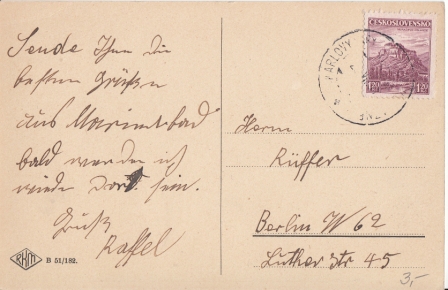 Sende Ihnen die
besten Grüßen
aus Marienbad
bald werden ich
wieder Dort sein.
Gruß
Raffel
RKM
B 51/182.
ČESKOSLOVENSKO
1.20 1.20
KARLOVY
Herrn
Rüffer
Berlin W 62
Luther Str 45
3,-